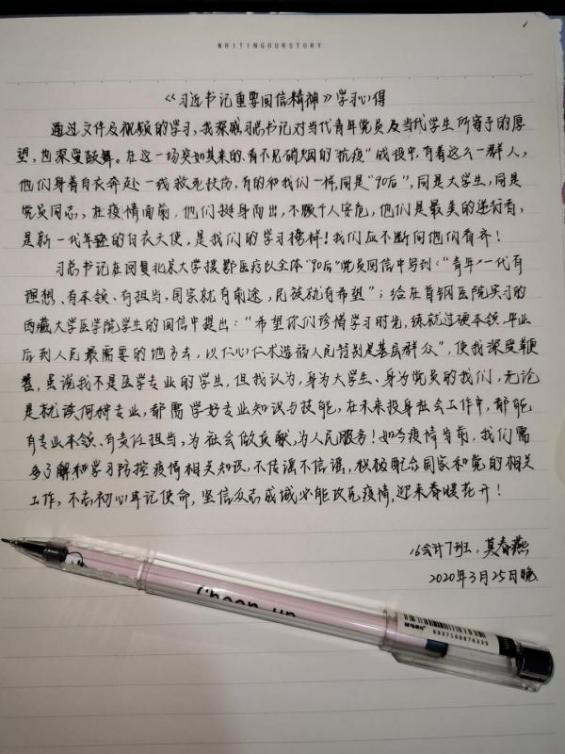 WRITINGOURSTORY
《习近书记重要回信精神》学习心得
通过文件及视频的学习，我深感习总书记对当代青年党员及当代学生所寄予的厚
望，也深受鼓舞。在这一场突如其来的、看不见硝烟的“抗疫”战役中，有着这么一群人，
他们身着白衣奔赴一线救死扶伤，有的和我们一样，同是“90后”，同是大学生，同是
党员同志，在疫情面前，他们挺身而出，不顾个人安危，他们是最美的逆行者，
是新一代年轻的白衣天使，是我们的学习榜样！我们应不断向他们看齐！
习总书记在回复北京大学援鄂医疗队全体“90后”党员回信中写到：“青年一代有
理想、有本领、有担当，国家就有前途，民族就有希望”；给在首钢医院实习的
西藏大学医学院学生的回信中提出：“希望你们珍惜学习时光，练就过硬本领，毕业
后到人民最需要的地方去，以仁心仁术造福人民特别是基层群众”，使我深度鞭
笞，虽说我不是医学专业的学生，但我认为，身为大学生、身为党员的我们，无论
是就读何种专业，都需学好专业知识与技能，在未来投身社会工作中，都能
有专业本领、有责任担当，为社会做贡献，为人民服务！如今疫情当前，我们需
多了解和学习防控疫情相关知识，不传谣不信谣，积极配合国家和党的相关
工作，不忘初心牢记使命，坚信众志成城必能攻克疫情，迎来春暖花开！
16会计7班：莫春燕
2020年3月25日晚
Cheer up